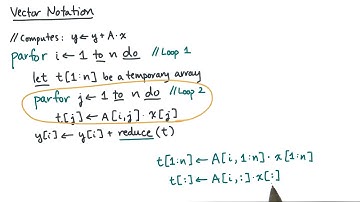 Vector Notation
// Computes: y ← y + A · x
parfor i ← 1 to n do // Loop 1
let t[1:n] be a temporary array
parfor j ← 1 to n do // Loop 2
t[j] ← A[i,j] · x[j]
y[i] ← y[i] + reduce(t)
t[1:n] ← A[i,1:n] · x[1:n]
t[:] ← A[i,:] · x[:]